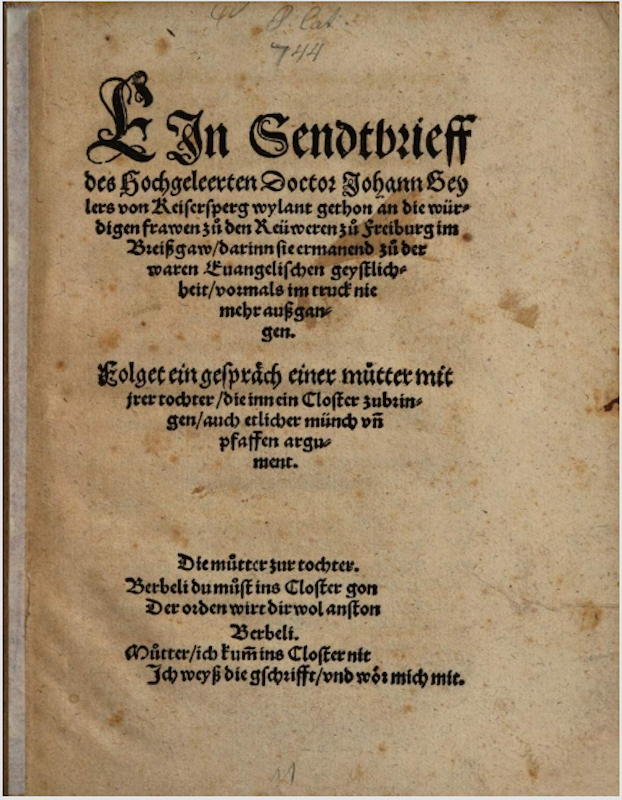 P. lat.
744
EIn Sendtbrieff
des Hochgeleerten Doctor Johann Gey
lers von Keisersperg wylant gethon an die wür-
digen frawen zů den Reüweren zů Freiburg im
Breißgaw/darinn sie ermanend zů der
waren Euangelischen geystlich-
heit/vormals im truck nie
mehr außgan-
gen.
Folget ein gespräch einer můtter mit
jrer tochter/die inn ein Closter zubrin-
gen/auch etlicher münch vñ
pfaffen argu-
ment.
Die můtter zur tochter.
Berbeli du můst ins Closter gon
Der orden wirt dir wol anston
Berbeli.
Můtter/ich kum̃ ins Closter nit
Ich weyß die gschrifft/vnd wör mich mit.